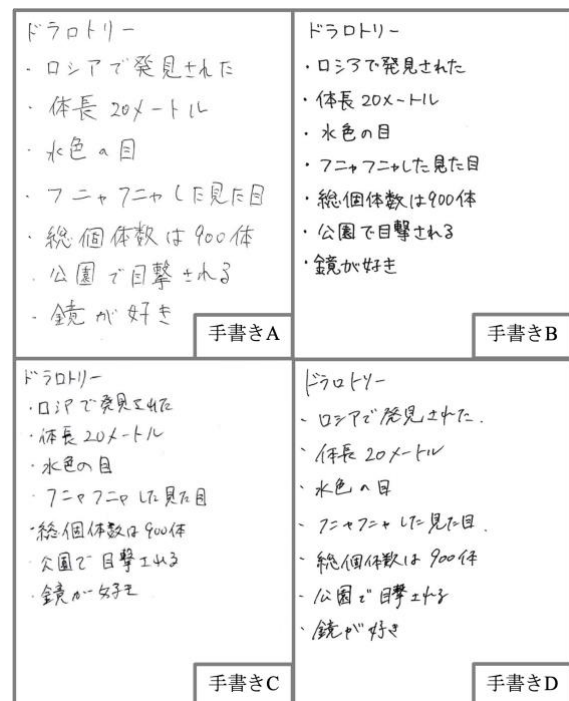 ドラロトリー
・ロシアで発見された
・体長 20メートル
・水色の目
・フニャフニャした見た目
・総個体数は900体
・公園で目撃される
・鏡が好き
手書きA
ドラロトリー
・ロシアで発見された
・体長 20メートル
・水色の目
・フニャフニャした見た目
・総個体数は900体
・公園で目撃される
・鏡が好き
手書きB
ドラロトリー
・ロシアで発見された
・体長 20メートル
・水色の目
・フニャフニャした見た目
・総個体数は900体
・公園で目撃される
・鏡が好き
手書きC
ドラロトリー
・ロシアで発見された.
・体長 20メートル
・水色の目
・フニャフニャした見た目.
・総個体数は 900体
・公園で目撃される
・鏡が好き
手書きD